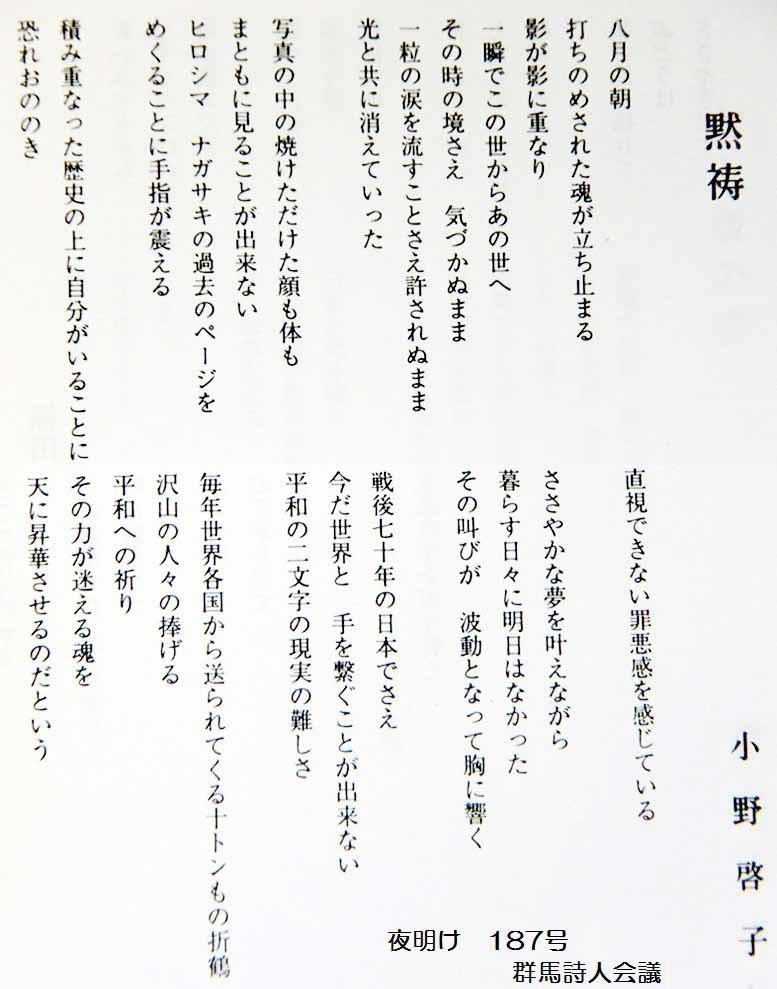 黙祷
小野啓子
八月の朝
打ちのめされた魂が立ち止まる
影が影に重なり
一瞬でこの世からあの世へ
その時の境さえ　気づかぬまま
一粒の涙を流すことさえ許されぬまま
光と共に消えていった
写真の中の焼けただけた顔も体も
まともに見ることが出来ない
ヒロシマ　ナガサキの過去のページを
めくることに手指が震える
積み重なった歴史の上に自分がいることに
恐れおののき
直視できない罪悪感を感じている
ささやかな夢を叶えながら
暮らす日々に明日はなかった
その叫びが　波動となって胸に響く
戦後七十年の日本でさえ
今だ世界と　手を繋ぐことが出来ない
平和の二文字の現実の難しさ
毎年世界各国から送られてくる十トンもの折鶴
沢山の人々の捧げる
平和への祈り
その力が迷える魂を
天に昇華させるのだという
夜明け　187号
群馬詩人会議